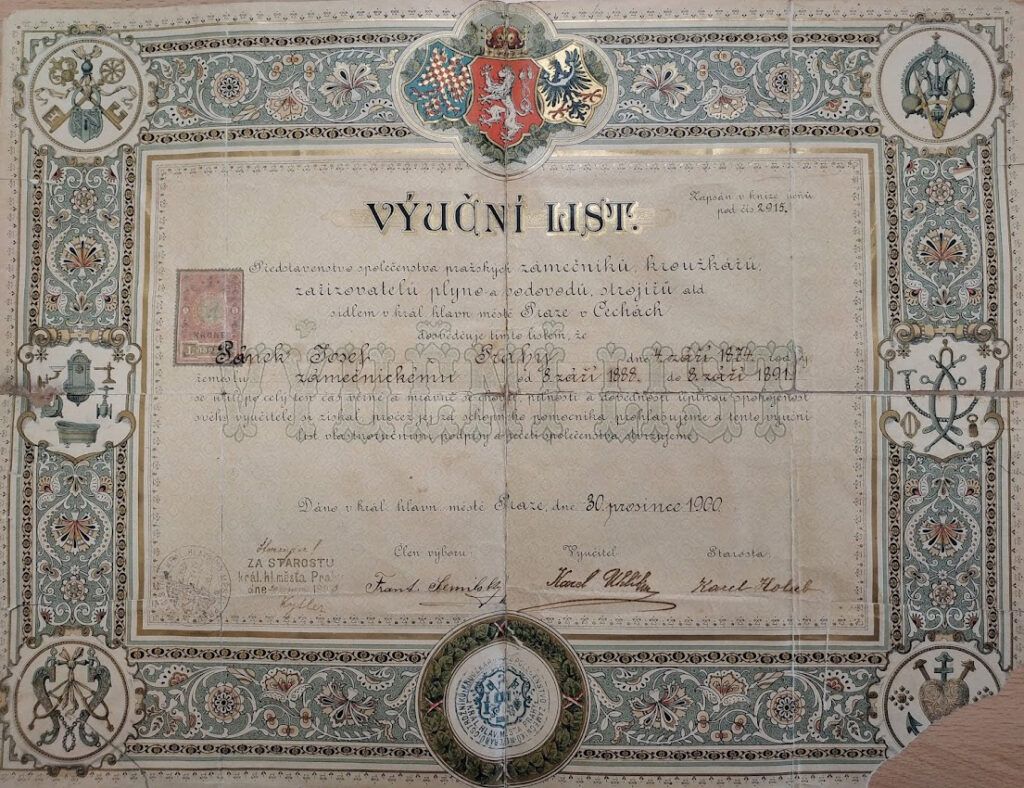 VÝUČNÍ LIST.
Zapsán v knize učňů
pod čís. 2915.
Představenstvo společenstva pražských zámečníků, kroužkařů,
zařizovatelů plyno- a vodovodů, strojířů atd.
sídlem v král. hlavn. městě Praze v Čechách
dosvědčuje tímto listem, že
Pánek Josef z Prahy dne 4. září 1874. rodilý,
řemeslu zámečnickému od 8. září 1888. do 8. září 1891.
se učil, po celý ten čas věrně a mravně se choval, pilností a dovedností úplnou spokojenost
svého vyučitele si získal, pročež jej za schopného pomocníka prohlašujeme a tento výuční
list vlastnoručními podpisy a pečetí společenstva stvrzujeme.
VÝUČNÍ LIST
Dáno v král. hlavn. městě Praze, dne 30. prosince 1900.
Člen výboru: Vyučitel Starosta:
ZA STAROSTU
král. hl. města Prahy
dne
Frant. Karel Karel Holub